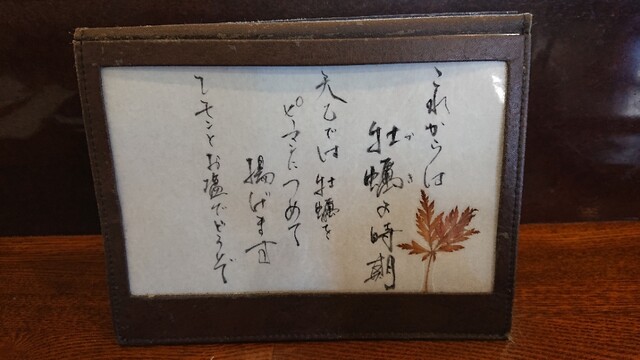 これからは
牡蠣の時期
天乙では牡蠣を
ピーマンにつめて
揚げます
レモンとお塩でどうぞ